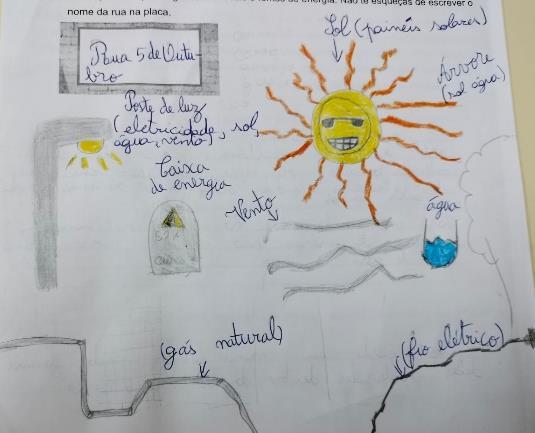 de energia. Não te esqueças de escrever o
nome da rua na placa.
Rua 5 de Outu-
bro
Sol (painéis solares)
Árvore
(sol água)
Poste de luz
(eletricidade, sol,
água, vento)
Caixa
de energia
Vento
água
(gás natural)
(fio elétrico)